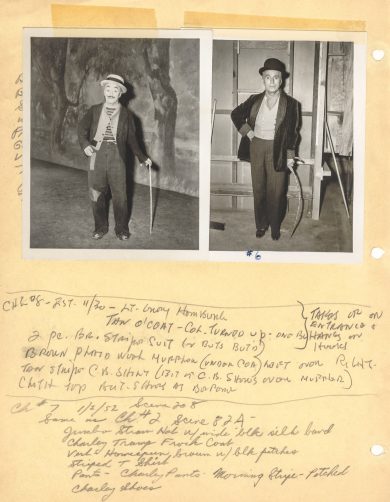 #6
CH#8 - RST. 11/30 - LT. Gray Homburg
Tan O'Coat - Col. Turned up - one Bu
Takes off on
Entrance &
Hangs on
Hooks
2 pc. Br. Stripe Suit (2 Buts But'd)
Brown Plaid Wool Muffler (under Coat) Left over Right.
Tan Stripe C.B. Shirt (1st of C.B. Shows over Muffler)
Cloth top But. Shoes as Before
Ch # 7 1/2/52 Scene 208
Same as Ch #2 Scene 82A -
Jumbo Straw Hat w/ wide blk silk band
Charley Tramp Frock Coat
Vest - Homespun brown w/ blk patches
Striped T Shirt
Pants - Charley Pants - Morning Stripe - Patched
Charley Shoes